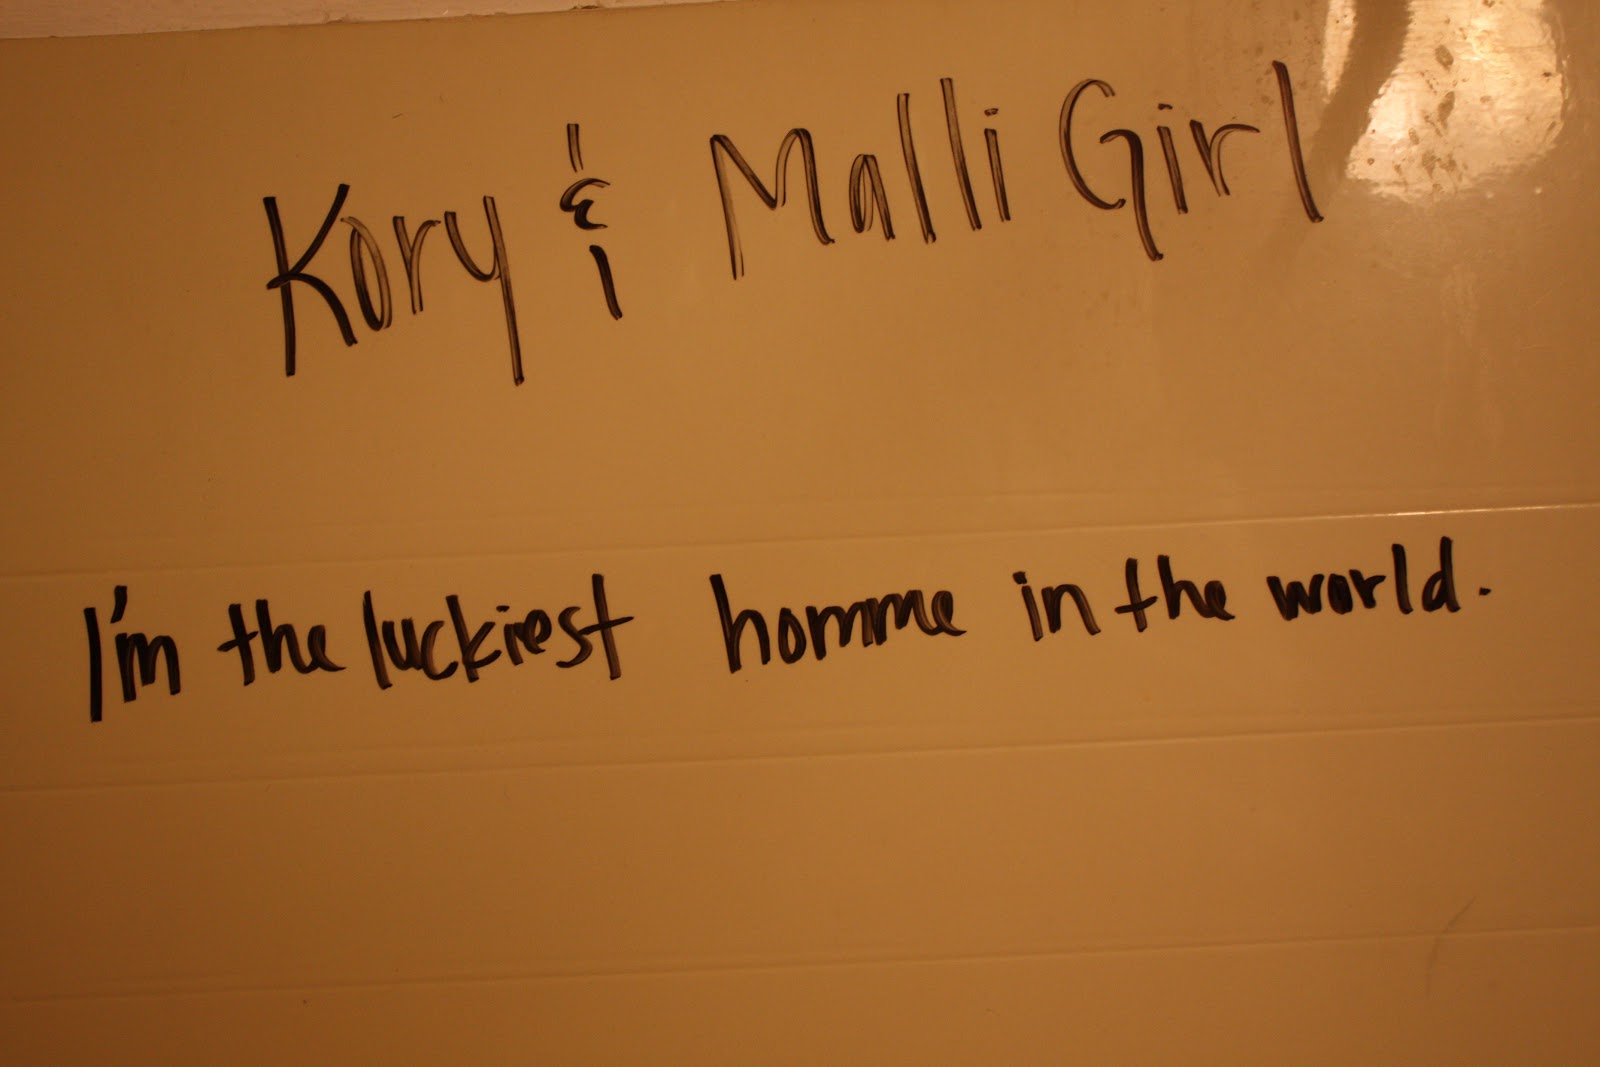 Kory & Malli Girl
I'm the luckiest homme in the world.